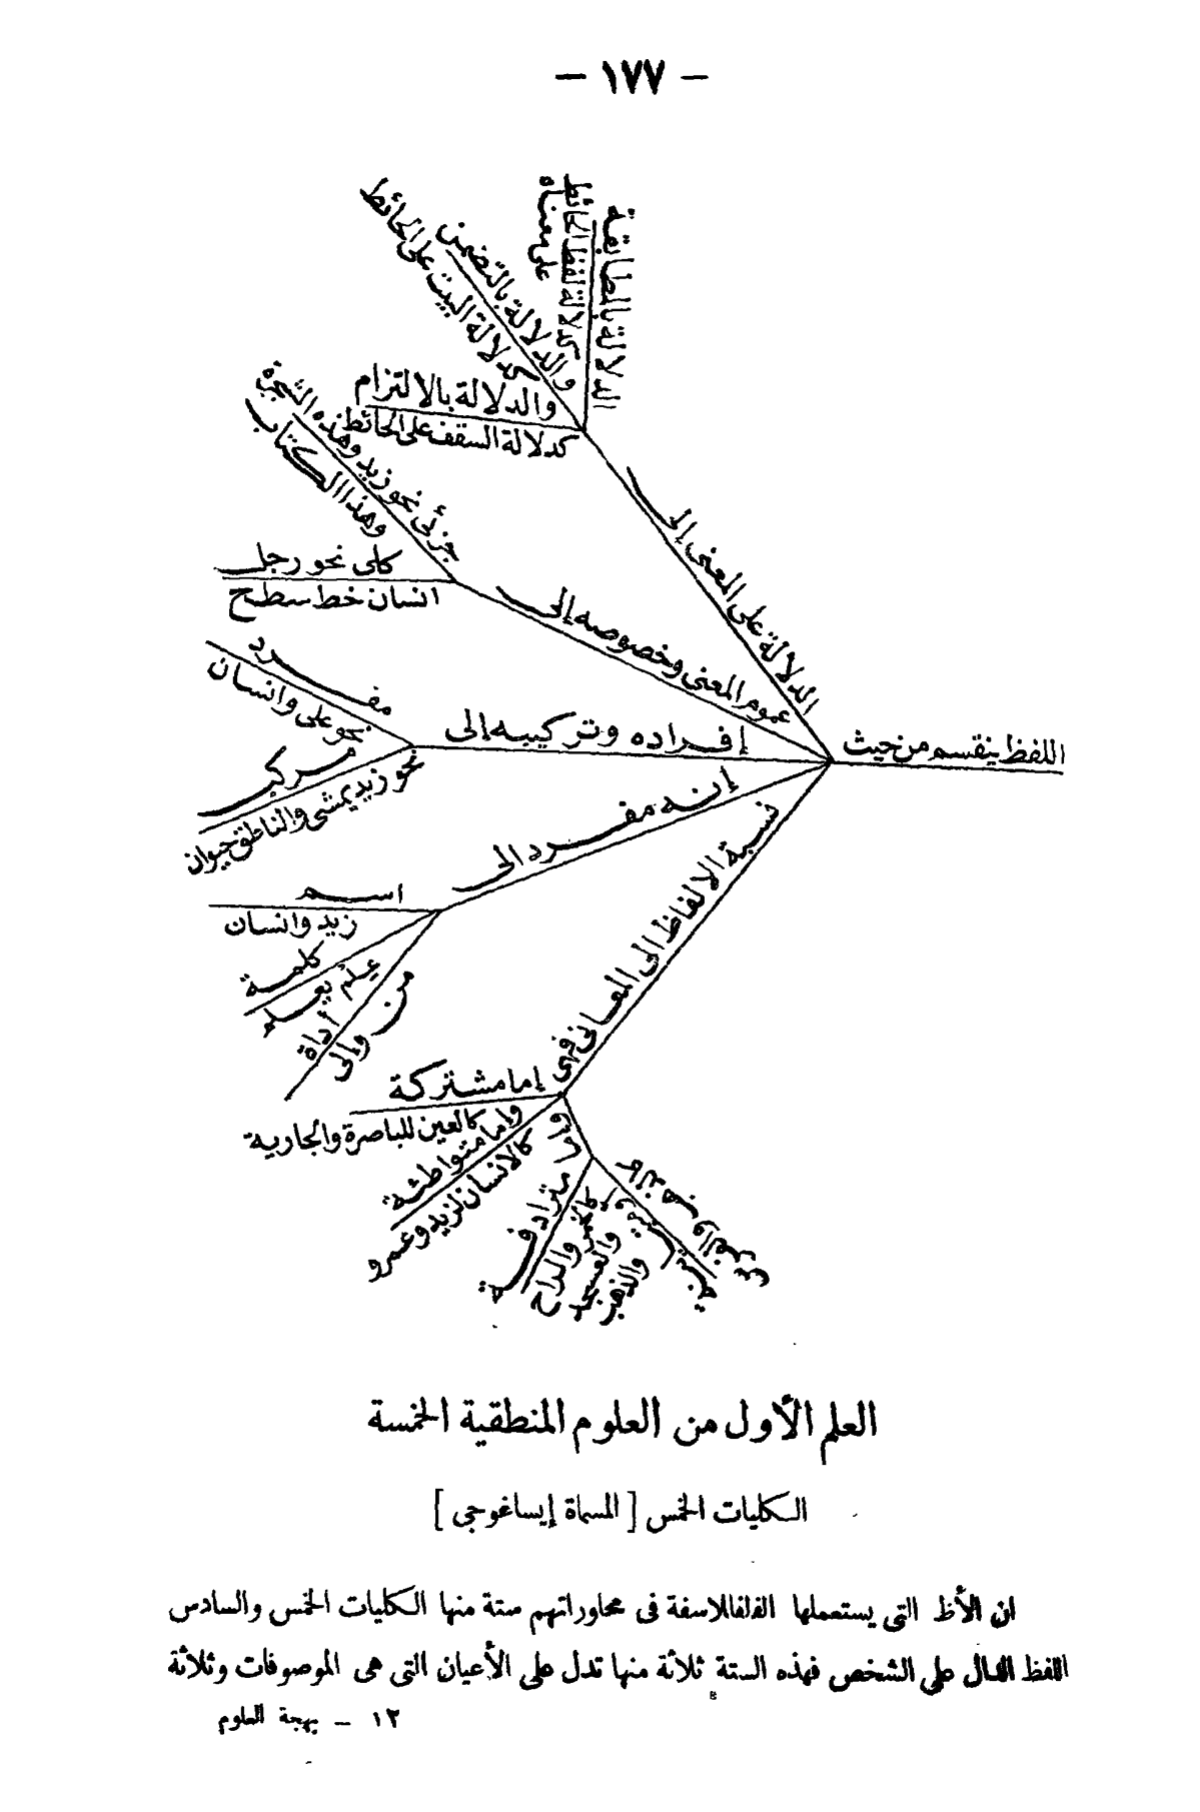 — ١٧٧ —
اللفظ ينقسم من حيث
الدلالة على المعنى إلى
الدلالة بالمطابقة
كدلالة لفظ الحائط
على معناه
والدلالة بالتضمن
كدلالة البيت على الحائط
والدلالة بالالتزام
كدلالة السقف على الحائط
عموم المعنى وخصوصه إلى
جزئى نحو زيد وهذه الشجرة
وهذا الكتاب
كلى نحو رجل
انسان خط سطح
إفراده وتركيبه إلى
مفرد
نحو على وانسان
مركب
نحو زيد يمشى والناطق حيوان
إنه مفرد الى
اسم
زيد وانسان
كلمة
علم يعلم
أداة
من وإلى
نسبة الالفاظ الى المعانى فهى
إما مشتركة
كالعين للباصرة والجارية
وإما متواطئة
كالانسان لزيد وعمرو
وإما
مترادفة
كالخمر والراح
والعسجد
والذهب
كالذهب والفرس
العلم الأول من العلوم المنطقية الخمسة
الكليات الخمس [ المسماة إيساغوجى ]
ان الأظ التى يستعملها الفلفالاسفة فى محاوراتهم ستة منها الكليات الخمس والسادس
اللفظ الدال على الشخص فهذه الستة ثلاثة منها تدل على الأعيان التى هى الموصوفات وثلاثة
١٢ — بهجة العلوم